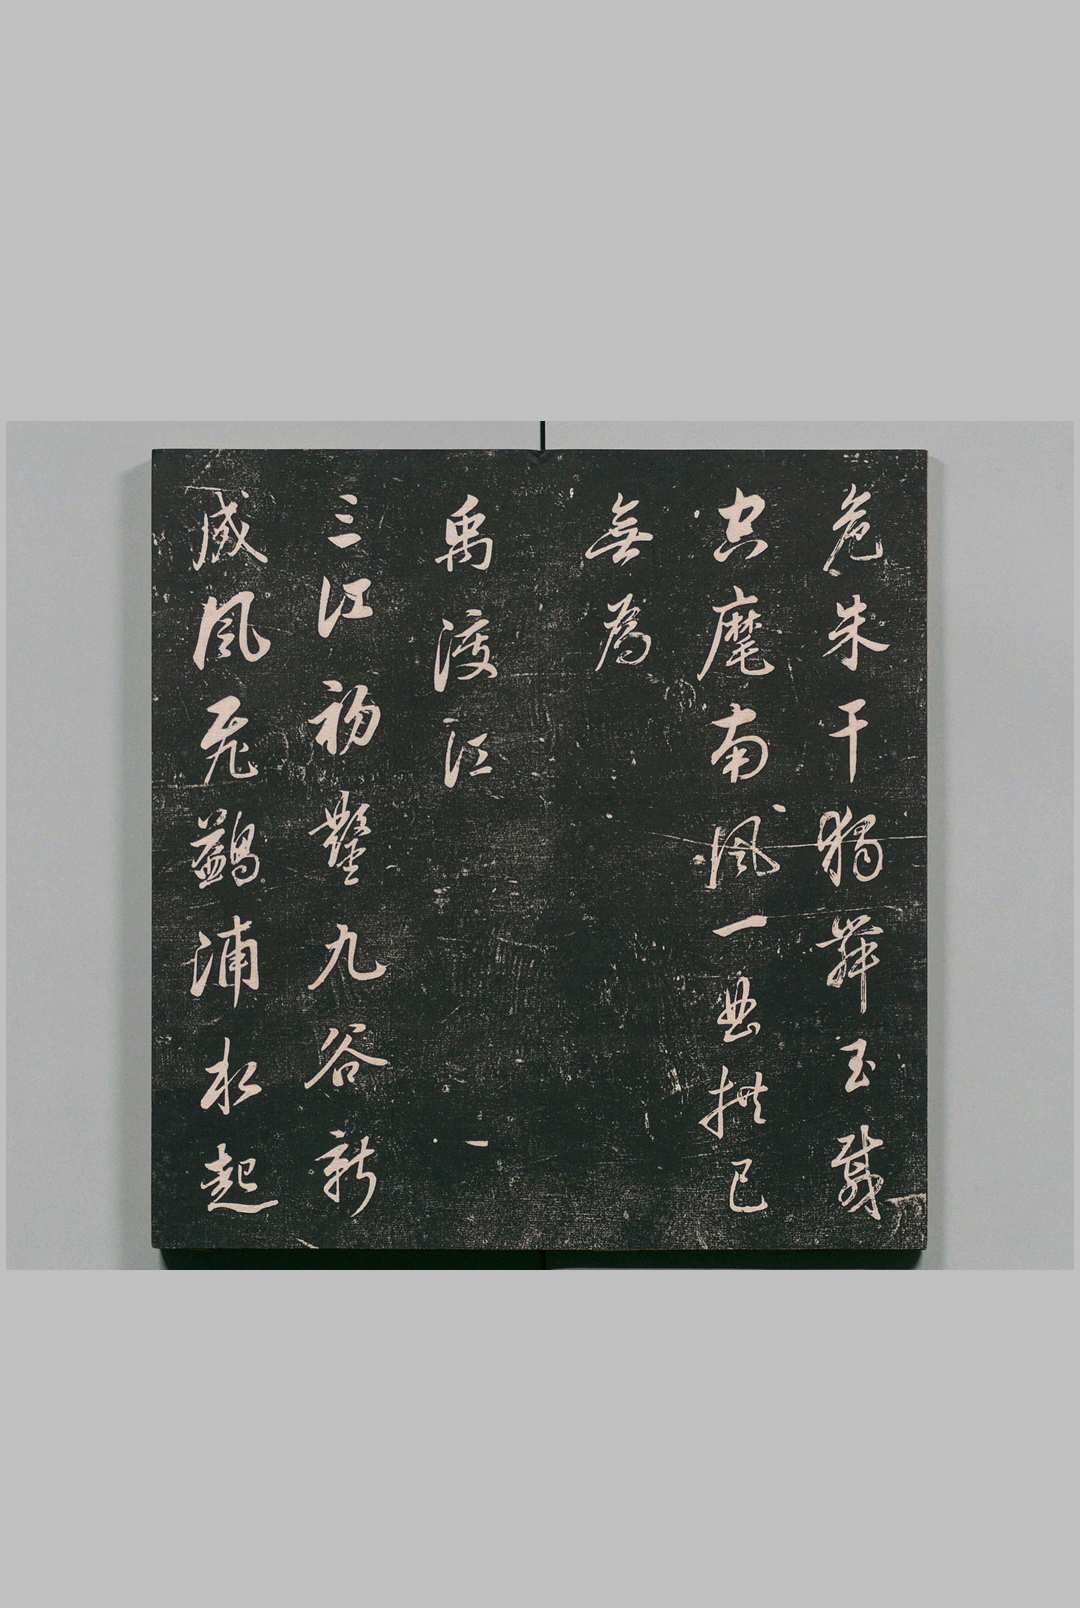 危朱干獨舞玉戚
空麾南風一曲拱己
無為
禹渡江
一
三江初鑿九谷新
成風飛鷁浦水起